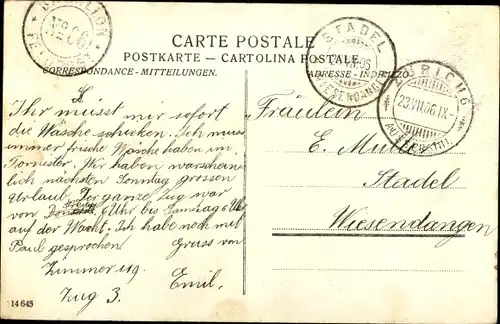 CARTE POSTALE
POSTKARTE - CARTOLINA POSTALE
CORRESPONDANCE - MITTEILUNGEN.
ADRESSE - INDIRIZZO
STADEL
WIESENDANGEN
ZÜRICH 6
23.VII.06.IX-
Ihr müsst mir sofort
die Wäsche schicken. Ich muss
immer frische Wäsche haben im
Tornister. Wir haben warschein
lich nächsten Sonntag grossen
Urlaub. Der ganze Zug war
von Freitag 6 Uhr bis Samstag 6 Uhr
auf der Wacht. Ich habe noch mit
Paul gesprochen
Gruss von
Zimmer 119
Emil.
Zug 3.
Fräulein
E. Muller
Stadel
Wiesendangen
14645